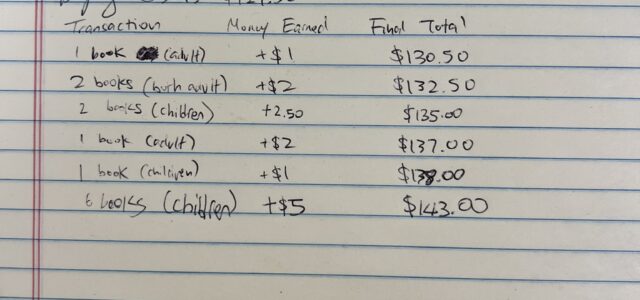 Transaction Money Earned Final Total
1 book (adult) +$1 $130.50
2 books (both adult) +$2 $132.50
2 books (children) +2.50 $135.00
1 book (adult) +$2 $137.00
1 book (children) +$1 $138.00
6 books (children) +$5 $143.00